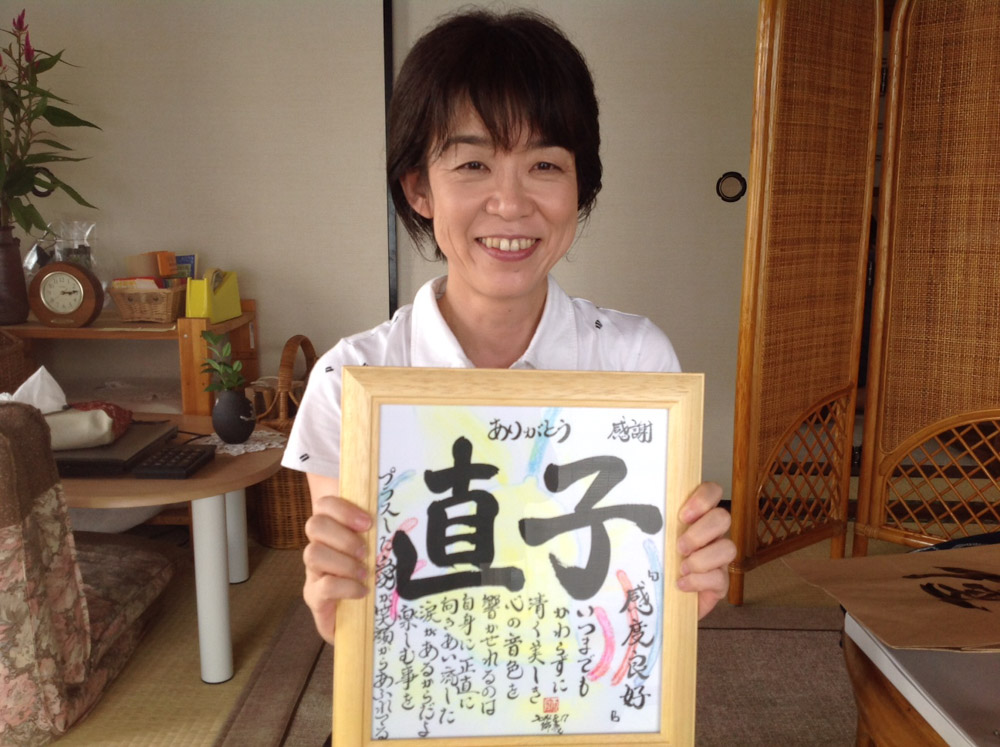 ありがとう 感謝
直子
「感度良好」
いつまでも
かわらずに
清く美しき
心の音色を
響かせれるのは
自身に正直に
向きあい流した
涙があるからだよ
楽しむ事を
プラスした が笑顔からあふれてる